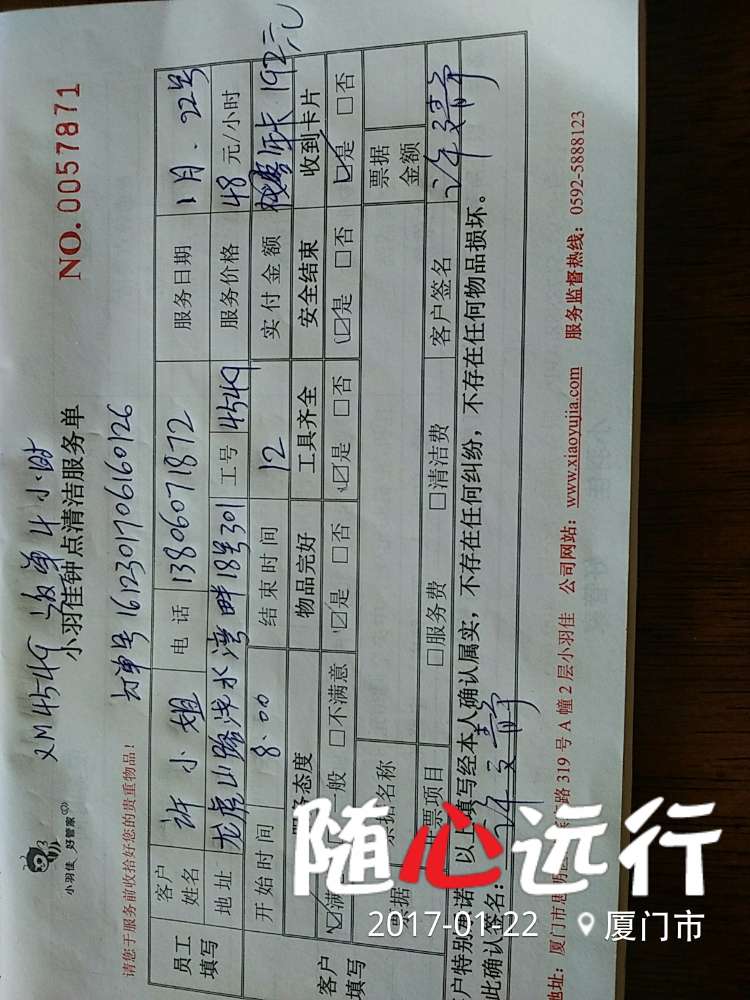 XM4549 派单4小时
小羽佳 好管家
小羽佳钟点清洁服务单
NO.0057871
请您于服务前收拾好您的贵重物品!
订单号 16123017061601​26
员工填写
客户姓名 许小姐 电话 13806071872 服务日期 1月.22号
地址 龙虎山路浅水湾畔18号301 工号 4549 服务价格 48 元/小时
开始时间 8.00 结束时间 12 实付金额 192元
客户填写
态度 物品完好 工具齐全 安全结束 收到卡片
☑满 般 □不满意 ☑是 □否 ☑是 □否 ☑是 □否 ☑是 □否
票据 票据名称 票据金额
票项目 □服务费 □清洁费 客户签名 许文静
户特别 诺 以上填写经本人确认属实,不存在任何纠纷,不存在任何物品损坏。
此确认签名: 许文静
地址: 厦门市思 路319号A幢2层小羽佳 公司网站: www.xiaoyujia.com 服务监督热线: 0592-5888123
随心远行
2017-01-22 厦门市